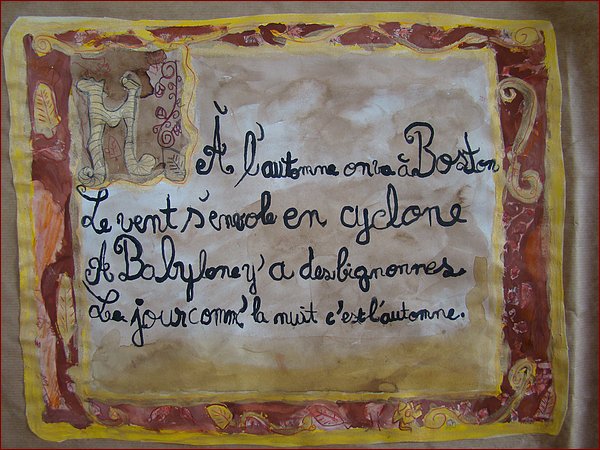 M
À l'automne on va à Boston
Le vent s'envole en cyclone
A Babylone y' a des bignonnes
Le jour comm' la nuit c'est l'automne.